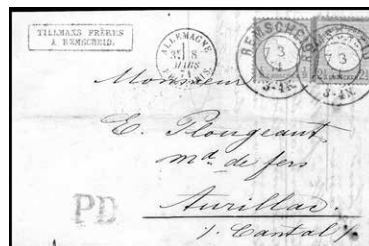 TILLMANS FRÈRES
À REMSCHEID.
ALLEMAGNE
8
MARS
REMSCHEID
7 3
3-4N.
REMSCHEID
7 3
3-4N.
Monsieur
E. Plougeant
md de fers
Aurillac.
PD
/. Cantal /.